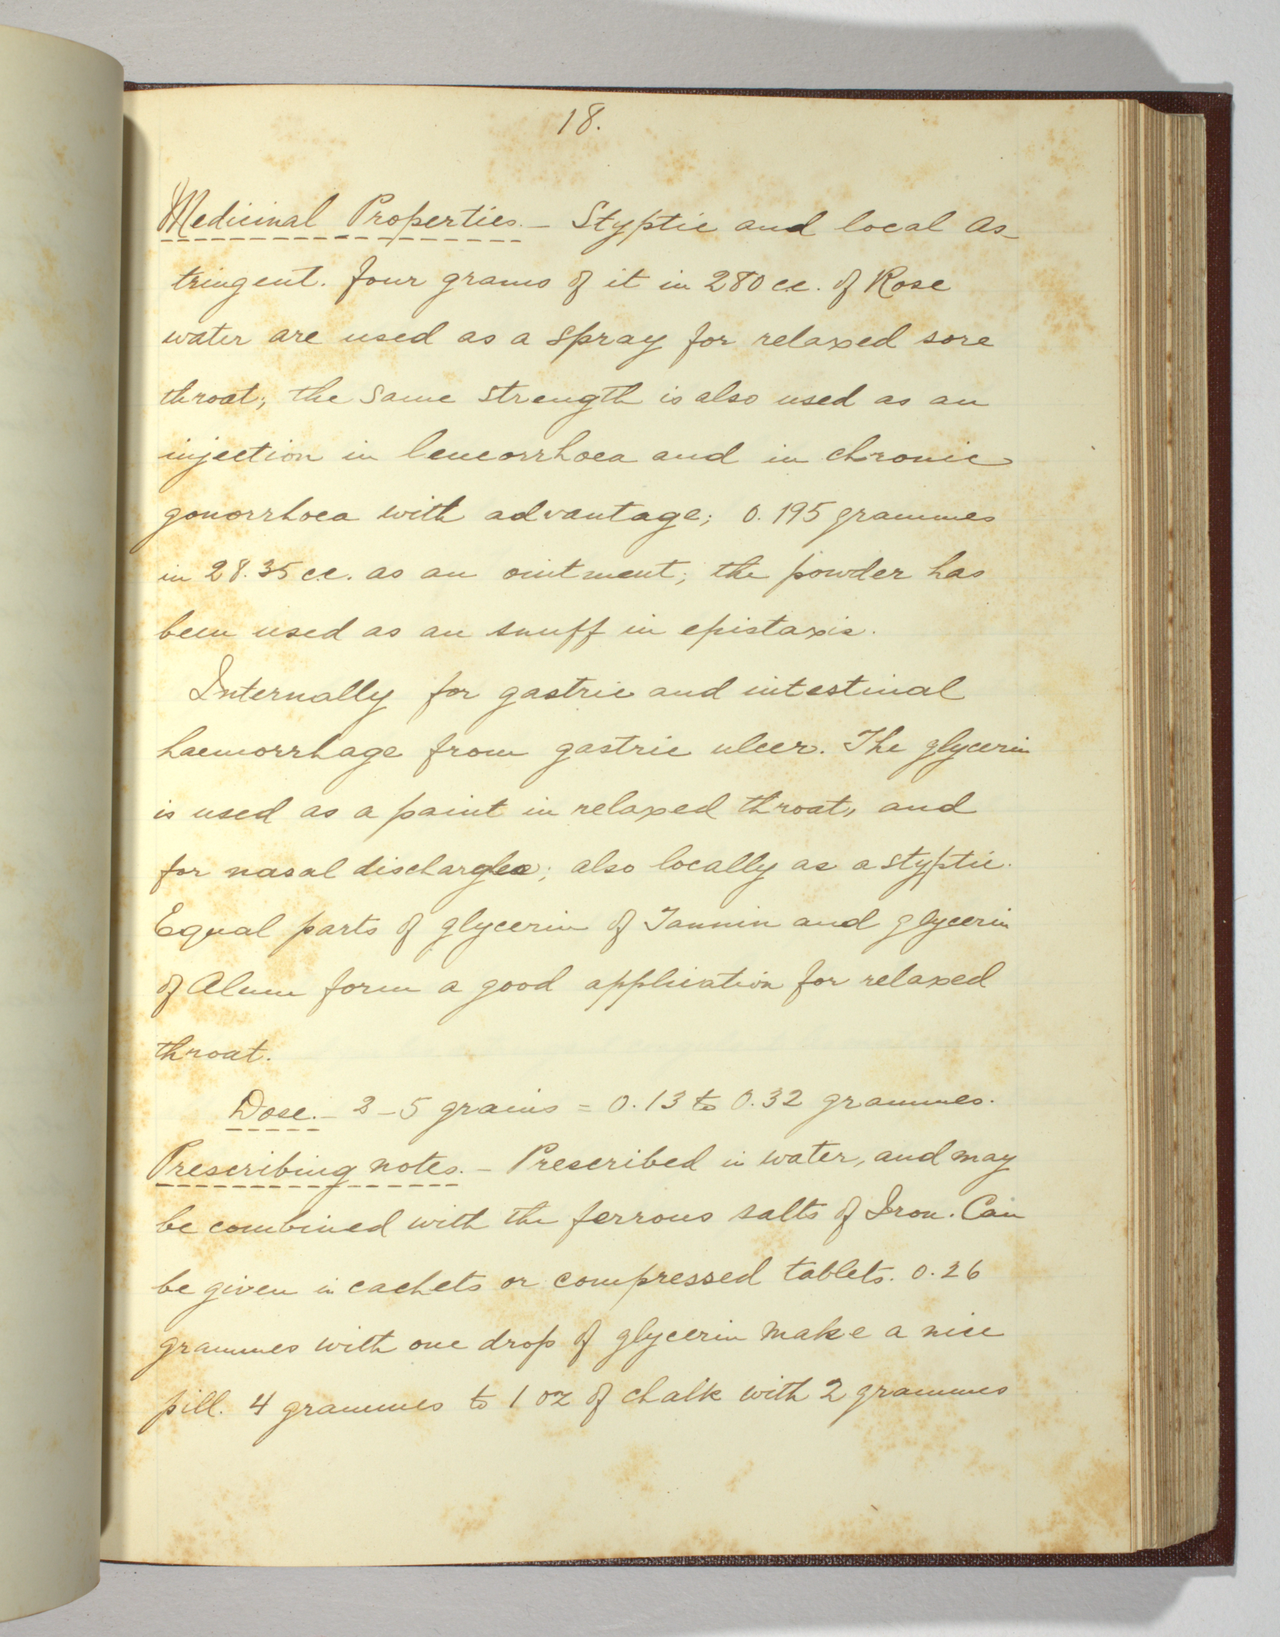 18.
Medicinal Properties. - Styptic and local as-
tringent. Four grams of it in 280 cc. of Rose
water are used as a spray for relaxed sore
throat; the same strength is also used as an
injection in leucorrhoea and in chronic
gonorrhoea with advantage; 0.195 grammes
in 28.35 cc. as an ointment; the powder has
been used as an snuff in epistaxis.
Internally for gastric and intestinal
haemorrhage from gastric ulcer. The glycerin
is used as a paint in relaxed throat, and
for nasal discharges; also locally as a styptic.
Equal parts of glycerin of Tannin and glycerin
of Alum form a good application for relaxed
throat.
Dose. - 2-5 grains = 0.13 to 0.32 grammes.
Prescribing notes. - Prescribed in water, and may
be combined with the ferrous salts of Iron. Can
be given in cachets or compressed tablets. 0.26
grammes with one drop of glycerin make a nice
pill. 4 grammes to 1 oz of chalk with 2 grammes